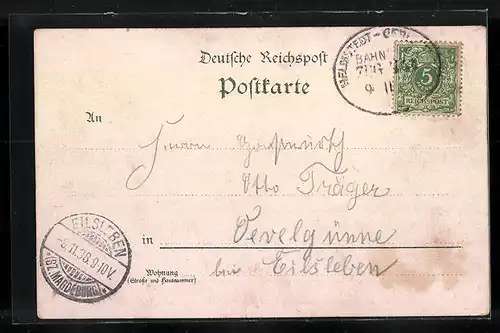 Deutsche Reichspost
Postkarte
HELMSTEDT-
BAHN
ZUG
9 11
5
REICHSPOST
An
Herrn
Otto Träger
in Oevelgünne
bei Eilsleben
Wohnung
(Straße und Hausnummer)
EILSLEBEN
6.11.98.9-10V.
(BZ. MAGDEBURG)